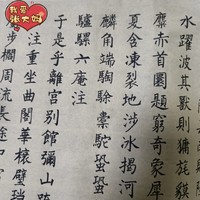 水躍波其獸則旄貘
麋赤首圜題窮奇象犀
夏含凍裂地涉冰揭河
麟角端騊駼橐駝蛩蛩
驢騾六庵注
于是乎離宮别館彌山跨
注重坐曲閣華榱璧璫
步櫩周流長途中
我爱
张大妈